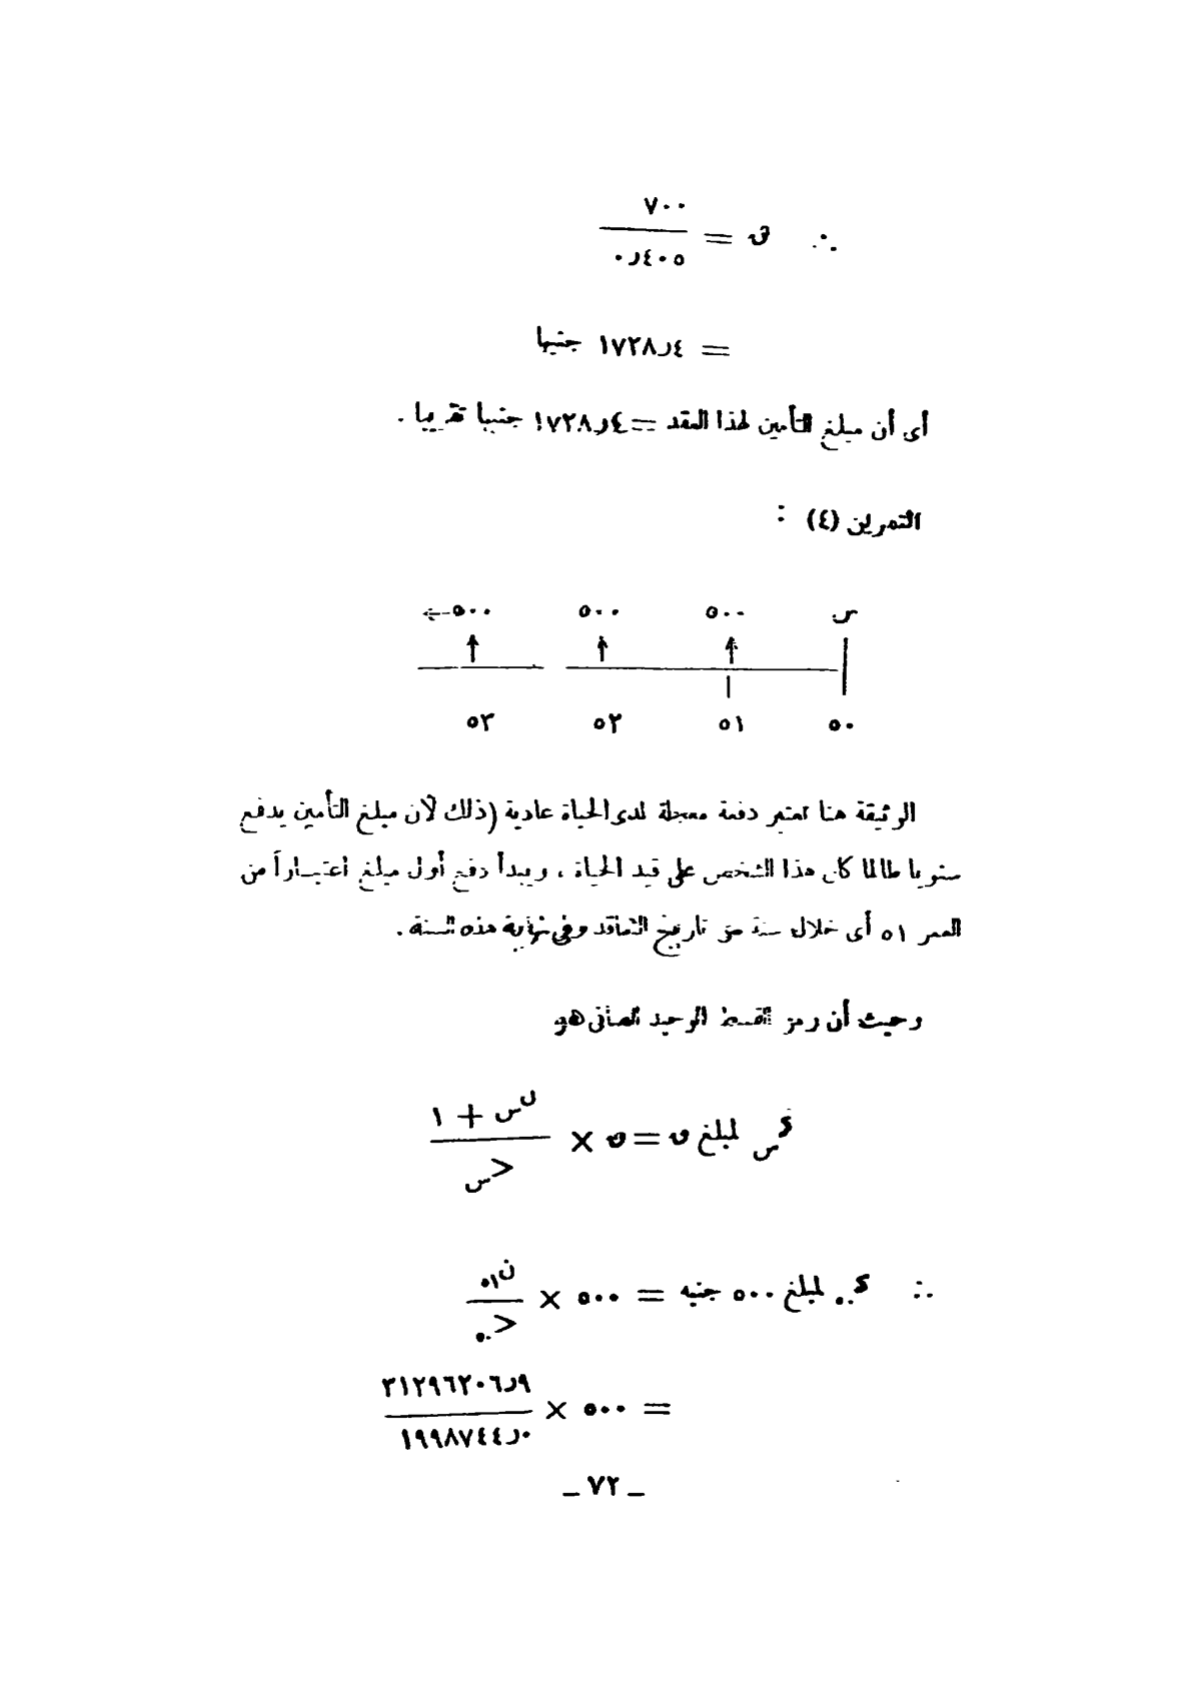 ∴ ق = ٧٠٠ / ٤٠٥ر٠
= ١٧٢٨ر٤ جنيها
أى أن مبلغ التأمين لهذا العقد = ١٧٢٨ر٤ جنيها تقريبا .
التمرين (٤) :
س ٥٠٠ ٥٠٠ ٥٠٠
٥٠ ٥١ ٥٢ ٥٣
الوثيقة هنا تعتبر دفعة معجلة لمدى الحياة عادية (ذلك لأن مبلغ التأمين يدفع
سنويا طالما كان هذا الشخص على قيد الحياة ، ويبدأ دفع أول مبلغ اعتباراً من
العمر ٥١ أى خلال سنة من تاريخ التعاقد وفى نهاية هذه السنة .
وحيث أن رمز القسط الوحيد الصافى هو
ءس لمبلغ ق = ق × ن س + ١ / ح س
∴ ء٥٠ لمبلغ ٥٠٠ جنيه = ٥٠٠ × ن٥١ / ح٥٠
= ٥٠٠ × ٣١٢٩٦٢٠٦ر٩ / ١٩٩٨٧٤٤ر٠
– ٧٢ –